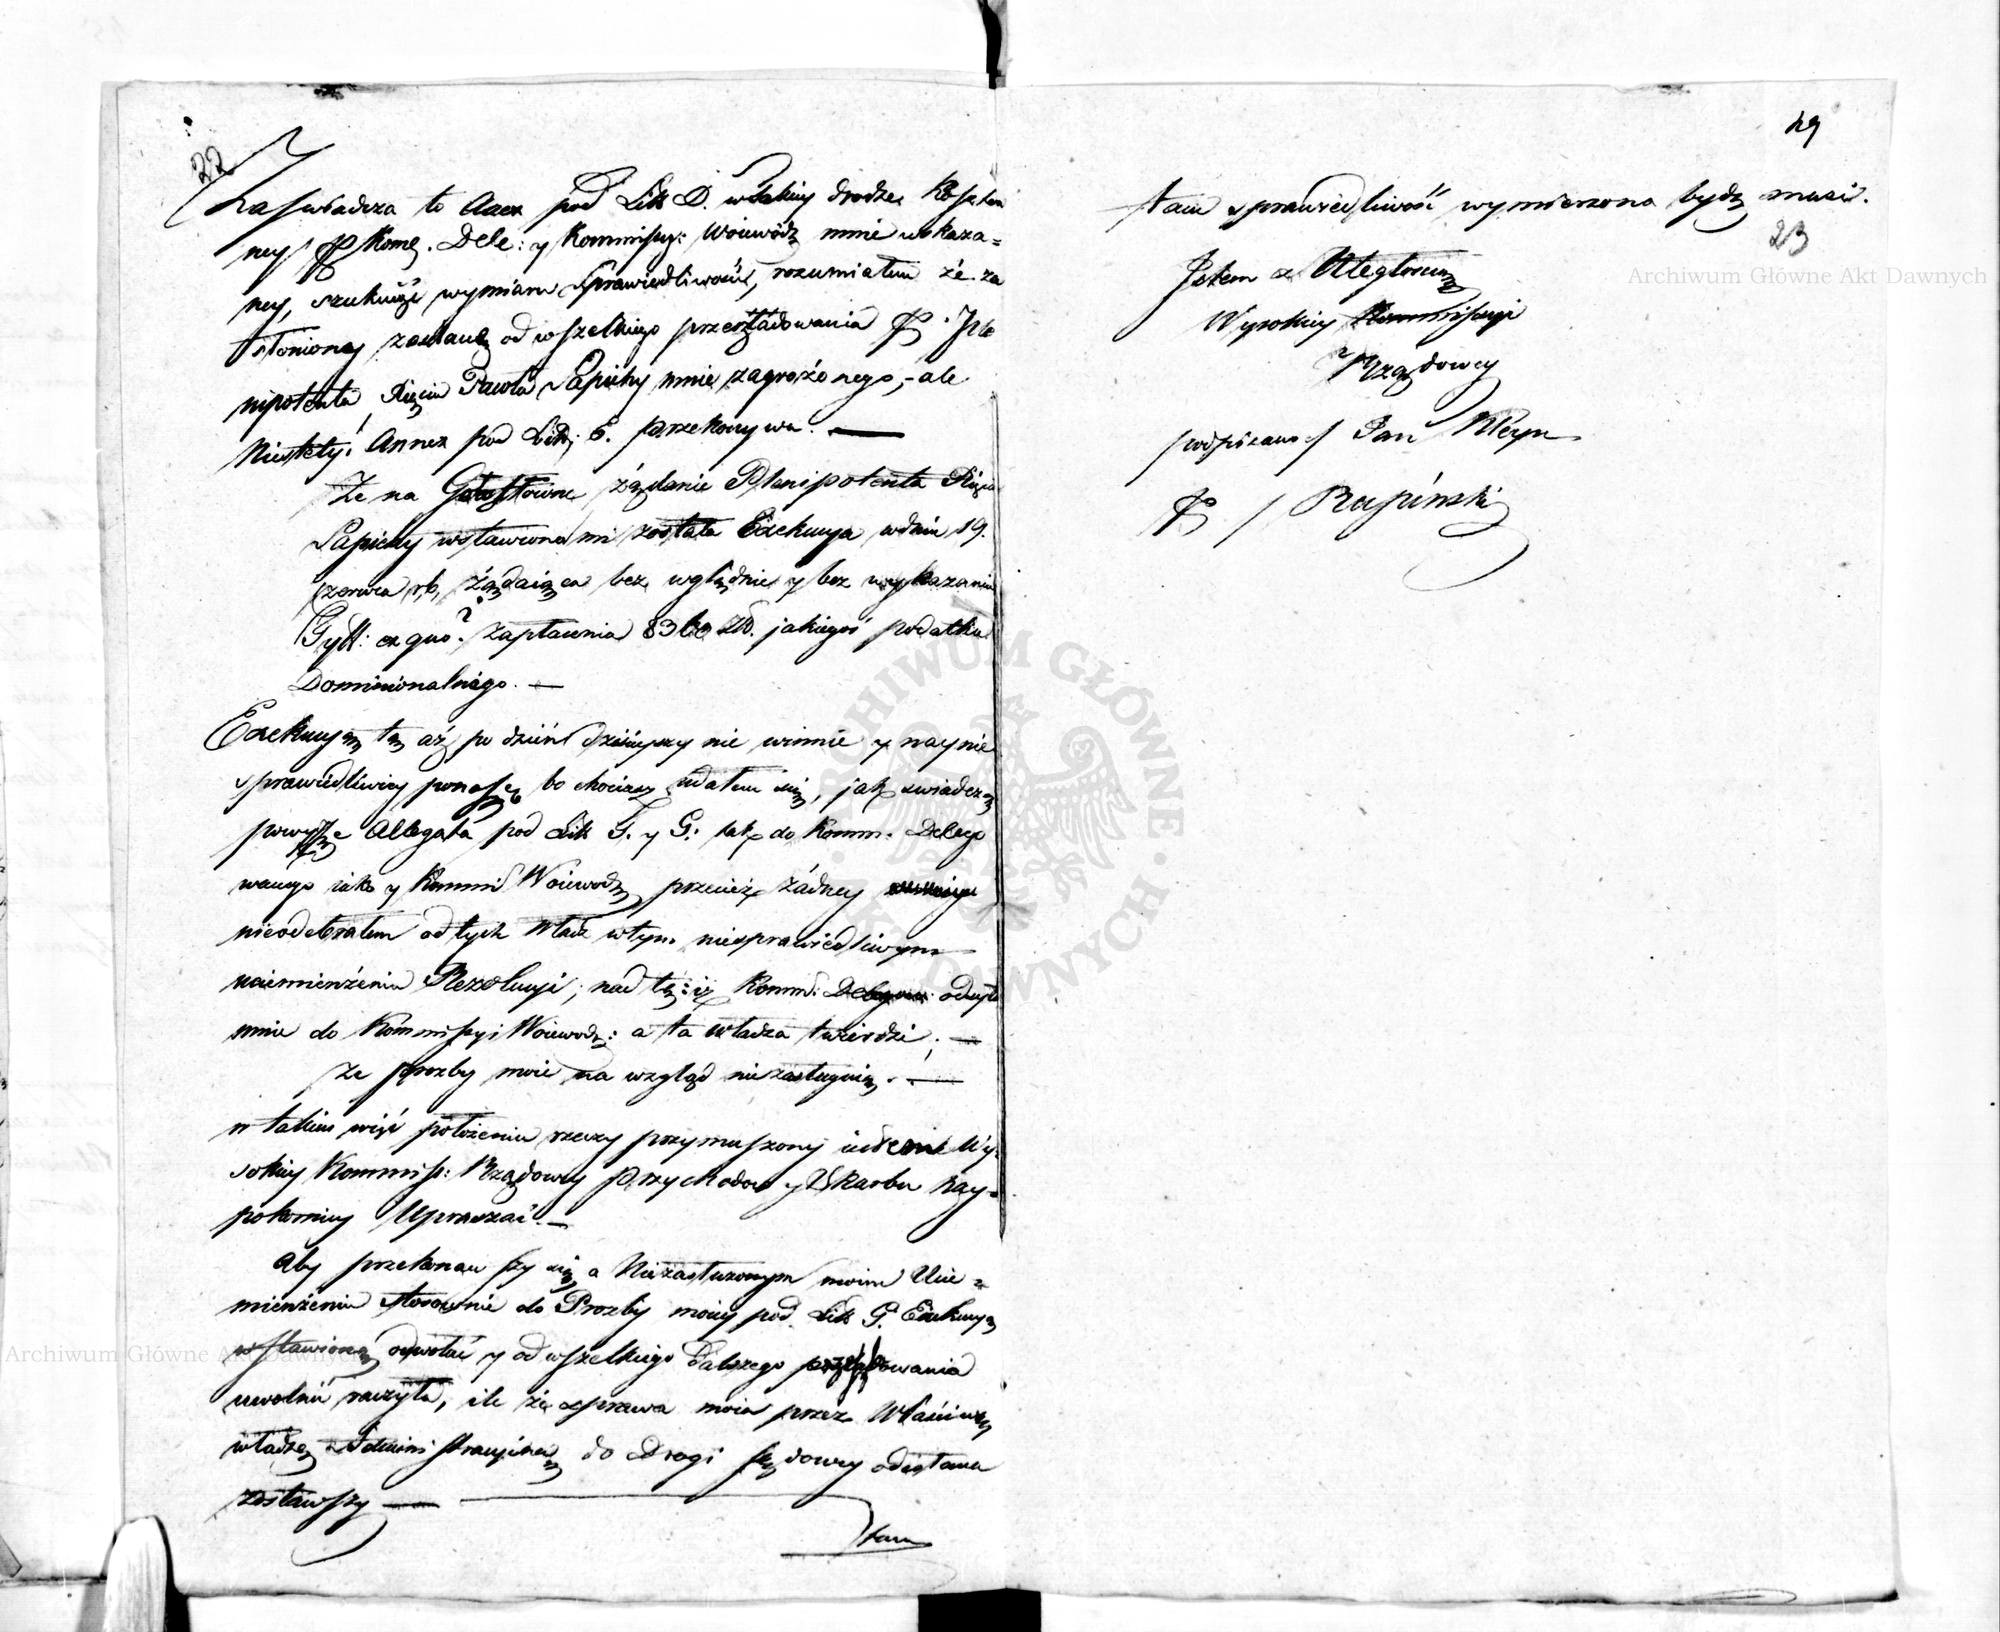 22
Zaswiadcza to Anex pod Litt D. w takiey drodze
ney P Kome. Dele: y Kommissyi: Woiewódz mnie wskaza=
ney, szukaiąc wymiaru sprawiedliwości, rozumiałem że za
słoniony zostanę od wszelkiego prześladowania P. Ple
nipotenta Xięcia Pawła Sapiehy mnie zagrożonego,- ale
Niestety! Annex pod Litt: E. przekonywa. —
Że na Gołosłowne żądanie Plenipotenta Xięcia
Sapiehy wstawiona mi została Exekucya w dniu 19.
Czerwca r, b, żądaiąca bez względnie y bez wykazania
Tytt: ex quo? zapłacenia Zł. jakiegoś podatku
Dominionalnego. —
Exekucyą tą aż po dzień dzisieyszy nie winnie y naynie
sprawiedliwiey ponoszę bo chociasz udałem się, jak swiadczą
powyższe Allegata pod Litt F. y G: tak do Komm: Delego
wanego iako y Kommis Woiewodz przecież żádney
nieodebrałem od tych Władz w tym niesprawiedliwym
uciemiężeniu Rezolucyi; nad to Komm: Delegow: odsyła
mnie do Kommissyi Woiewodz: a ta władza twierdzi; —
że prozby moie na wzgląd nie zasługuią. —
w takim więc położeniu rzeczy przymuszony iestem Wy=
sokiey Kommiss: Rządowey Przychodow y Skarbu nay=
pokorniey Upraszać. —
aby przekonawszy się o Niezasłużonym moim Ucie=
miężeniu stosownie do Prozby moiey pod Litt G. Exekucyą
wstawioną odwołać y od wszelkiego dalszego prześladowania
uwolnić raczyła, ile że sprawa moia przez Właściwą
władzę Administracyiną do Drogi sądowey odesłana
zostawszy —
tam
49
tam sprawiedliwość wymierzona bydź musi.
23
Jestem z Uległoscią
Wysokiey Kommissyi
Rządowey
/podpisano/ Jan Kleyn
P /
Archiwum Główne Akt Dawnych
Archiwum Główne Akt Dawnych
ARCHIWUM GŁÓWNE AKT DAWNYCH